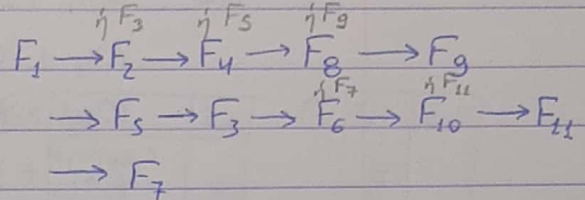 ή F₃ ή F₅ ή F₉
F₁ → F₂ → F₄ → F₈ → F₉
ή F₇ ή F₁₁
→ F₅ → F₃ → F₆ → F₁₀ → F₁₁
→ F₇